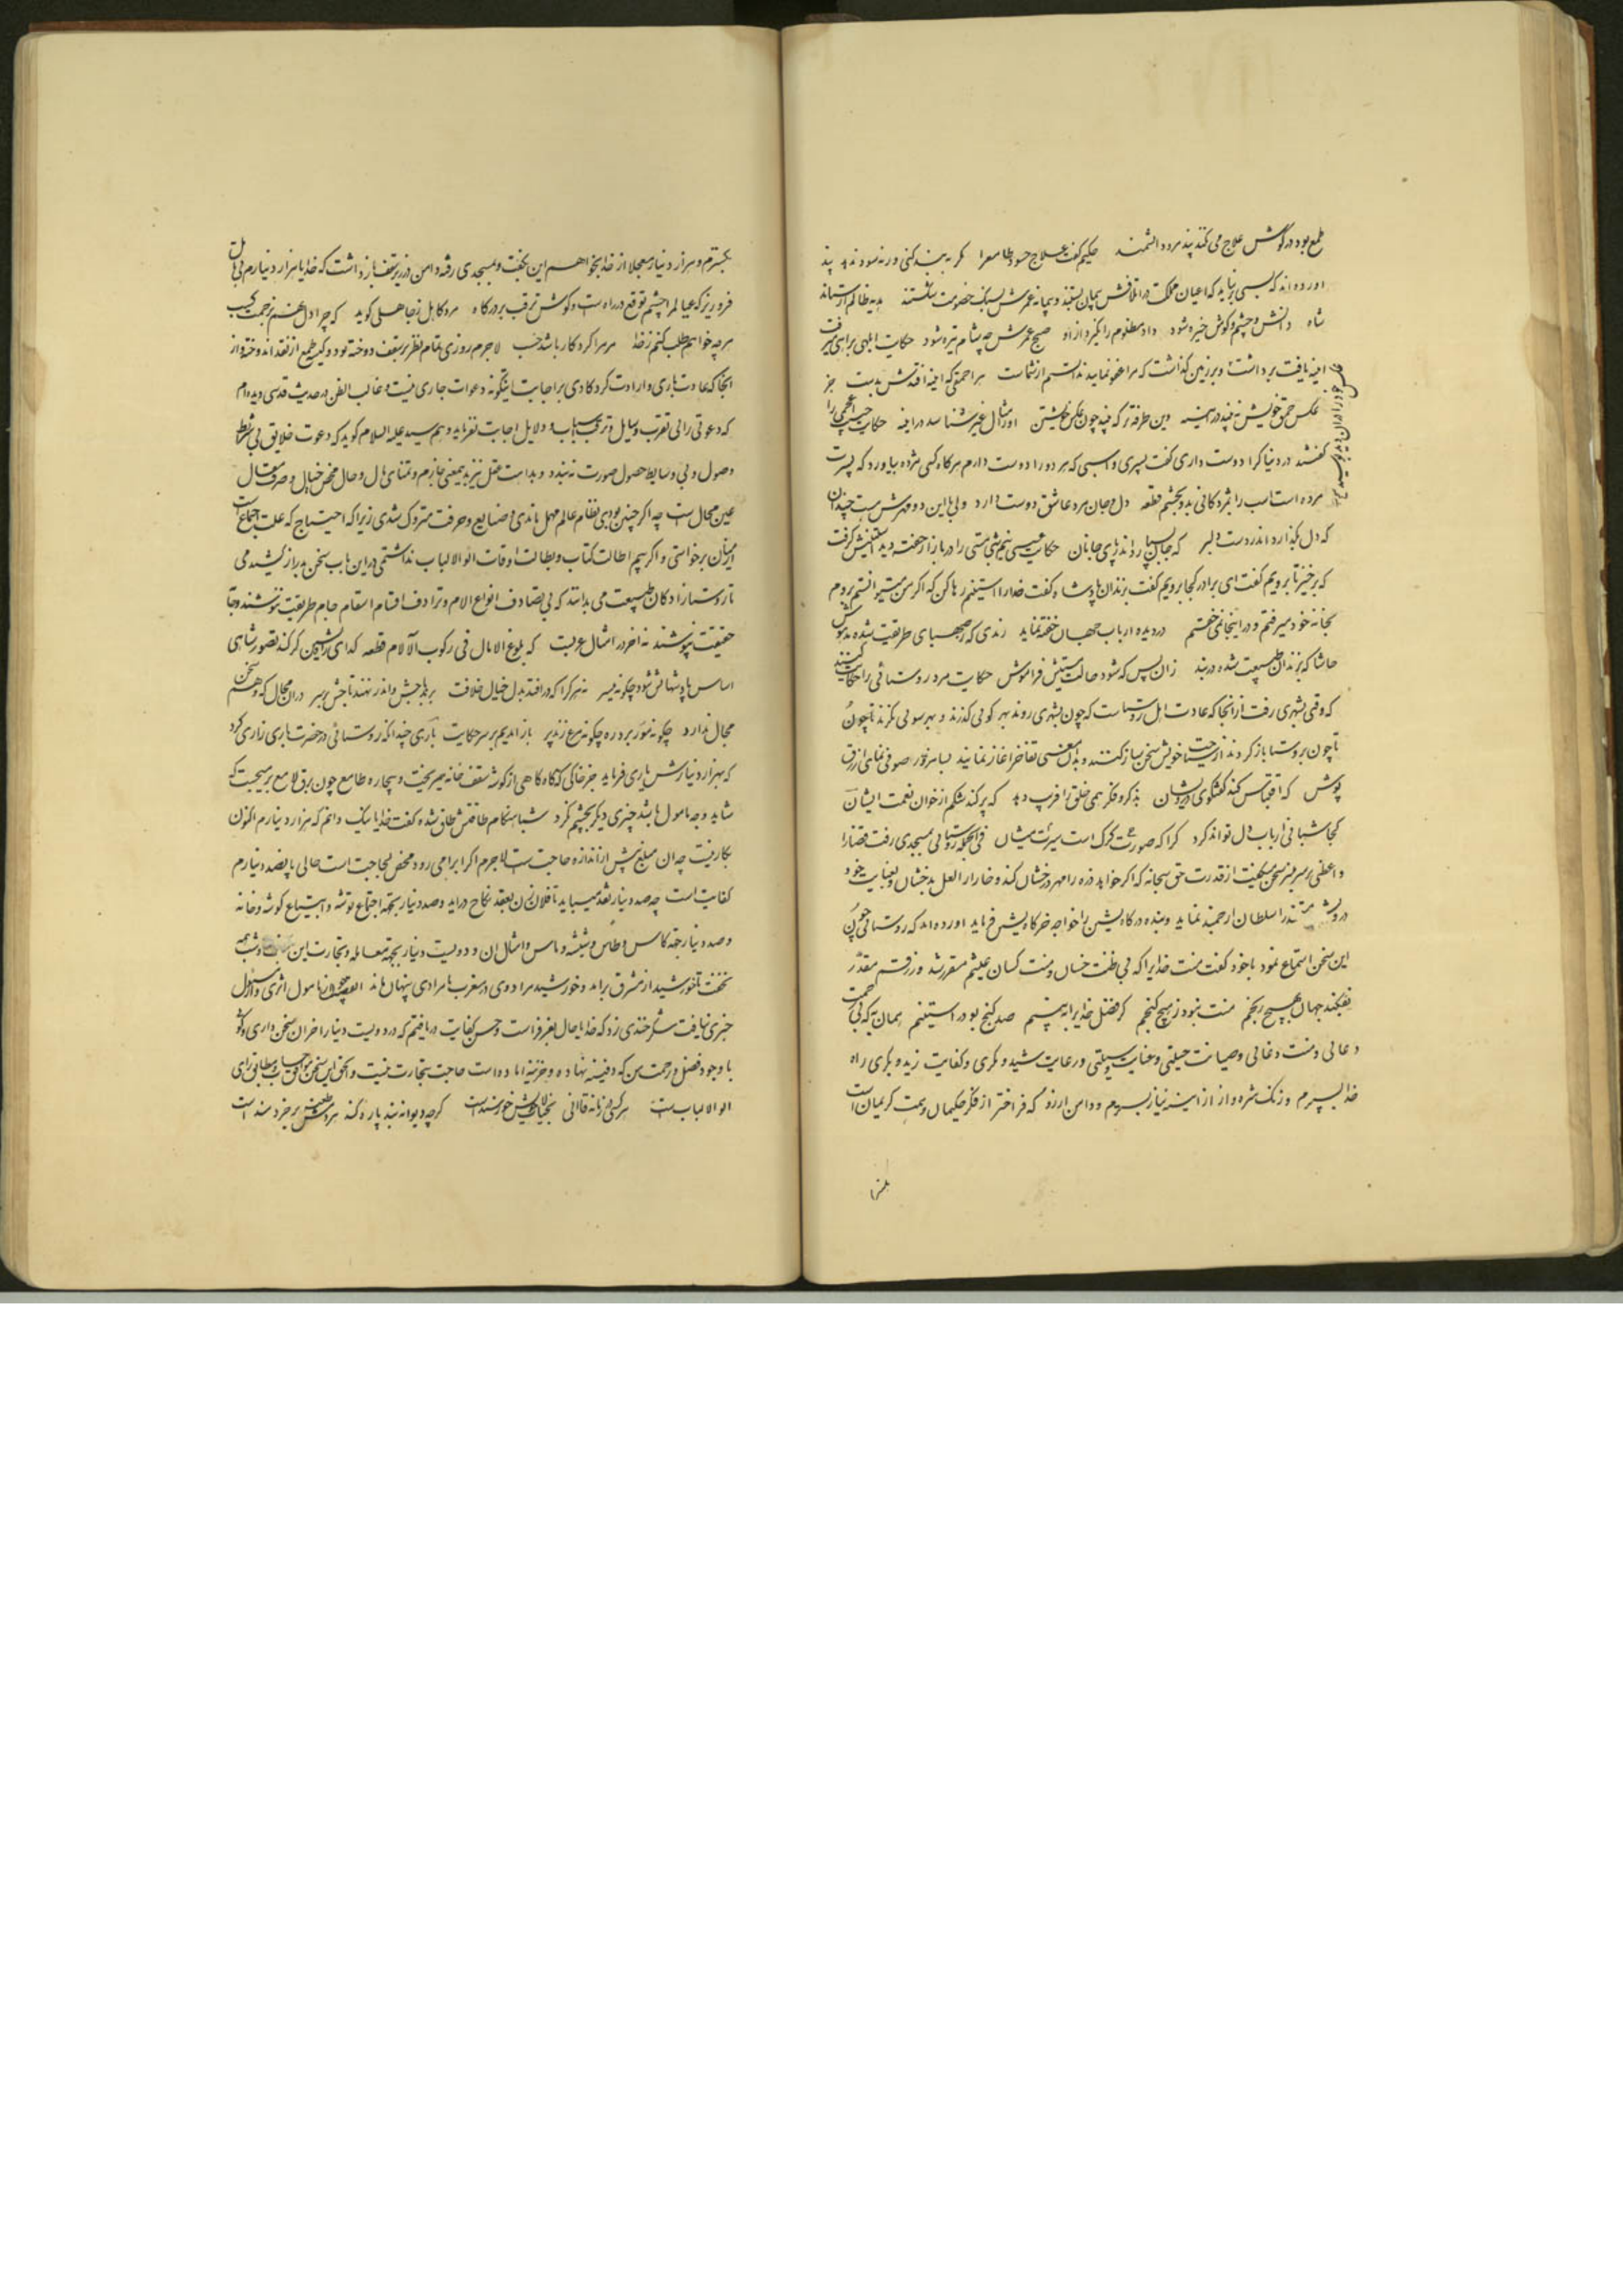 طمع بود در گوش علاج می نکند پند مرد دانشمند حکیم گفت علاج حسود طامع را که به بند کنی ورنه سود ندهد پند
اورده اند که بسی بر نیاید که اعیان مملکت در اتلافش پیمان بستند و پیمانه عمرش بسنگ خصومت بشکستند ظالم ارستاند
شاه دانش و چشم و گوش خیره شود داد مظلوم را نگیرد از او صبح عمرش چه شام تیره شود حکایت ابلهی براهی میرفت
اینه یافت برداشت و بر زمین گذاشت که مرا عفو نمایید ندانستم از شماست هر احمقی که اینه افتدش بدست جز
عکس خود را در ان دید و ترسید
عکس حمق خویش نبیند در آینه وین طرفه تر که بیند چون عکس خویشتن او را مثال غیر شناسد در اینه حکایت اعجمی را
گفتند در دنیا کرا دوست داری گفت پسری و اسبی که هر دو را دوست دارم هرگاه کسی مژده بیاورد که پسرت
مرده است اسب را بمژدگانی بدو بخشم قطعه دل و جان مرد عاشق دوست دارد ولی با این دو مهرش نیست چندان
که دل بگذارد اندر دست دلبر که جان بسپارد اندر پای جانان حکایت عسسی نیم شبی مستی را در بازار خفته دید استینش گرفت
که برخیز تا برویم گفت ای برادر کجا برویم گفت بزندان پادشاه گفت خدا را استینم رها کن که اگر من میتوانستم بروم
بخانه خود میرفتم و در اینجا نمی خفتم در دیده ارباب جهان خفته نماید رندی که ز صهبای طریقت شده مدهوش
حاشا که بزندان طبیعت شده در بند زان پس که شود حالت مستیش فراموش حکایت مرد روستائی را حکایت کنند
که وقتی بشهری رفت از انجا که عادت اهل روستاست که چون بشهری روند بهر کویی گذرند و بهر سویی نگرند تا چون
تا چون بروستا باز گردند از سیاحت خویش سخن ساز کنند و بدان معنی تفاخر اغاز نمایند صوفی نمای ازرق
پوش که اقتباس کند گفتگوی درویشان بذکر و فکر همی خلق را فریب دهد که پر کند شکم از خوان نعمت ایشان
کجا شبانی ارباب دل تواند کرد کرا که صورت گرگ است سیرت میشان فی الجمله روستایی بمسجدی رفت قضا را
واعظی بر سر منبر سخن میگفت از قدرت حق سبحانه که اگر خواهد ذره را مهر درخشان کند و خارا را لعل بدخشان و بعنایت خود
درویش مستمند را سلطان ارجمند نماید و بنده درگاهیش را خواجه خرگاهیش فرماید اورده اند که روستایی چون
این سخن استماع نمود با خود گفت منت خدایرا که بی ظنت خسان و منت کسان عیشم مقرر شد و رزقم مقدر
نفکند جهان بهیچ رنجم منت نبود ز هیچ گنجم گر فضل خدایرا به بینم صد گنج بود در استینم همان به که بی زحمت
دعائی و منت دغائی و صیانت حیلتی و عنایت وسیلتی و رعایت شید و مکری و کفایت زید و بکری راه
خدا بسپرم و زنگ شره و از از آینه نیاز بسترم و دامن ارزو که فراختر از فکر حکیمان و همت کریمان است
بگسترم و هزار دینار معجلا از خدا بخواهم این بگفت و بمسجدی رفته دامن در زیر سقف باز داشت که خدایا هزار دینارم
فرو ریز که عیالم را چشم توقع در راه است و گوش ترقب بر درگاه مرد کاهل ز جاهلی گوید که چرا دل نهم بزحمت کسب
هر چه خواهم طلب کنم ز خدا مر مرا کردگار باشد حسب لاجرم روزی تمام نظر بر سقف دوخته بود و کیسه طمع از نقد اندوخته و از
انجا که عادت باری و ارادت کردگاری بر اجابت اینگونه دعوات جاری نیست و غالب الظن در حدیث قدسی دیده ام
که دعوتی را بی تقرب وسایل و ترتب اسباب و دلایل اجابت نفرماید و هم سید علیه السلام گوید که دعوت خلایق بی شرایط
وصول و بی وسایط حصول صورت نبندد و بداهت عقل نیز بدینمعنی جازم و تمنای مال و حال محض خیال و صرف سئوال
عین محال است چه اگر چنین بودی نظام عالم مهمل ماندی و صنایع و حرفت متروک شدی زیرا که احتیاج که علت اجتماع است
از میان برخواستی و اگر بیم اطالت کتاب و بطالت اوقات اولوالالباب نداشتمی در این باب سخن بدراز کشیدمی
تا روستازادگان طبیعت می بدانند که بی تصادف انواع الام و ترادف اقسام اسقام جام طریقت ننوشند و جامه
حقیقت نپوشند نه اخر در امثال عربست که بلوغ الامال فی رکوب الآلام قطعه گدای راه نشین گر کند تصور شاهی
اساس پادشهانش شود چگونه میسر نه هر کرا که در افتد بدل خیال خلافت برند باجش و اندر نهند تاجش بر سر در ان مجال که وهم سخن
مجال ندارد چگونه مور برد ره چگونه مرغ زند پر باز ایدیم بر سر حکایت باری چندانکه روستائی در حضرت باری زاری کرد
که بهزار دینارش یاری فرماید جز خاکی که گاه گاهی از گوشه سقف خانه میریخت و بیچاره طامع چون برق لامع بر میجست که
شاید وجه مامول باشد چیزی دیگر بچشم نکرد شباهنگام طاقتش طاق شده گفت خدایا نیک دانم که هزار دینارم اکنون
بکار نیست چه ان مبلغ بیش از اندازه حاجت است لاجرم اگر ابرامی رود محض لجاجت است حالی پانصد دینارم
کفایت است چه صد دینار نقد میباید تا فلان زن بعقد نکاح دراید و صد دینار بجهة اجتماع توشه و ابتیاع گوشه و خانه
و صد دینار جهة کاس و طاس و شیشه و ماس و امثال ان و دویست دینار بجهة معامله و تجارت این و شب همه
نخفت تا خورشید از مشرق براند و خورشید مراد وی در مغرب نامرادی پنهان ماند القصه چون از مامول اثری و از مسئول
خبری نیافت شکرخندی زد که خدایا حال بعز فراست و حسن کفایت دریافتم که در دویست دینار اخران سخن داری و گوئی
با وجود فضل و رحمت من که دفینه نهاده و خزینه اماده است حاجت بتجارت نیست و الحق این سخن موافق حساب و مطابق رای
اولوالالباب است هر کسی در زمانه قاانی بخیالات خویش خورسند است گرچه دیوانه بند پاره کند هر دمش طعنه بر خردمند است
بگسترم